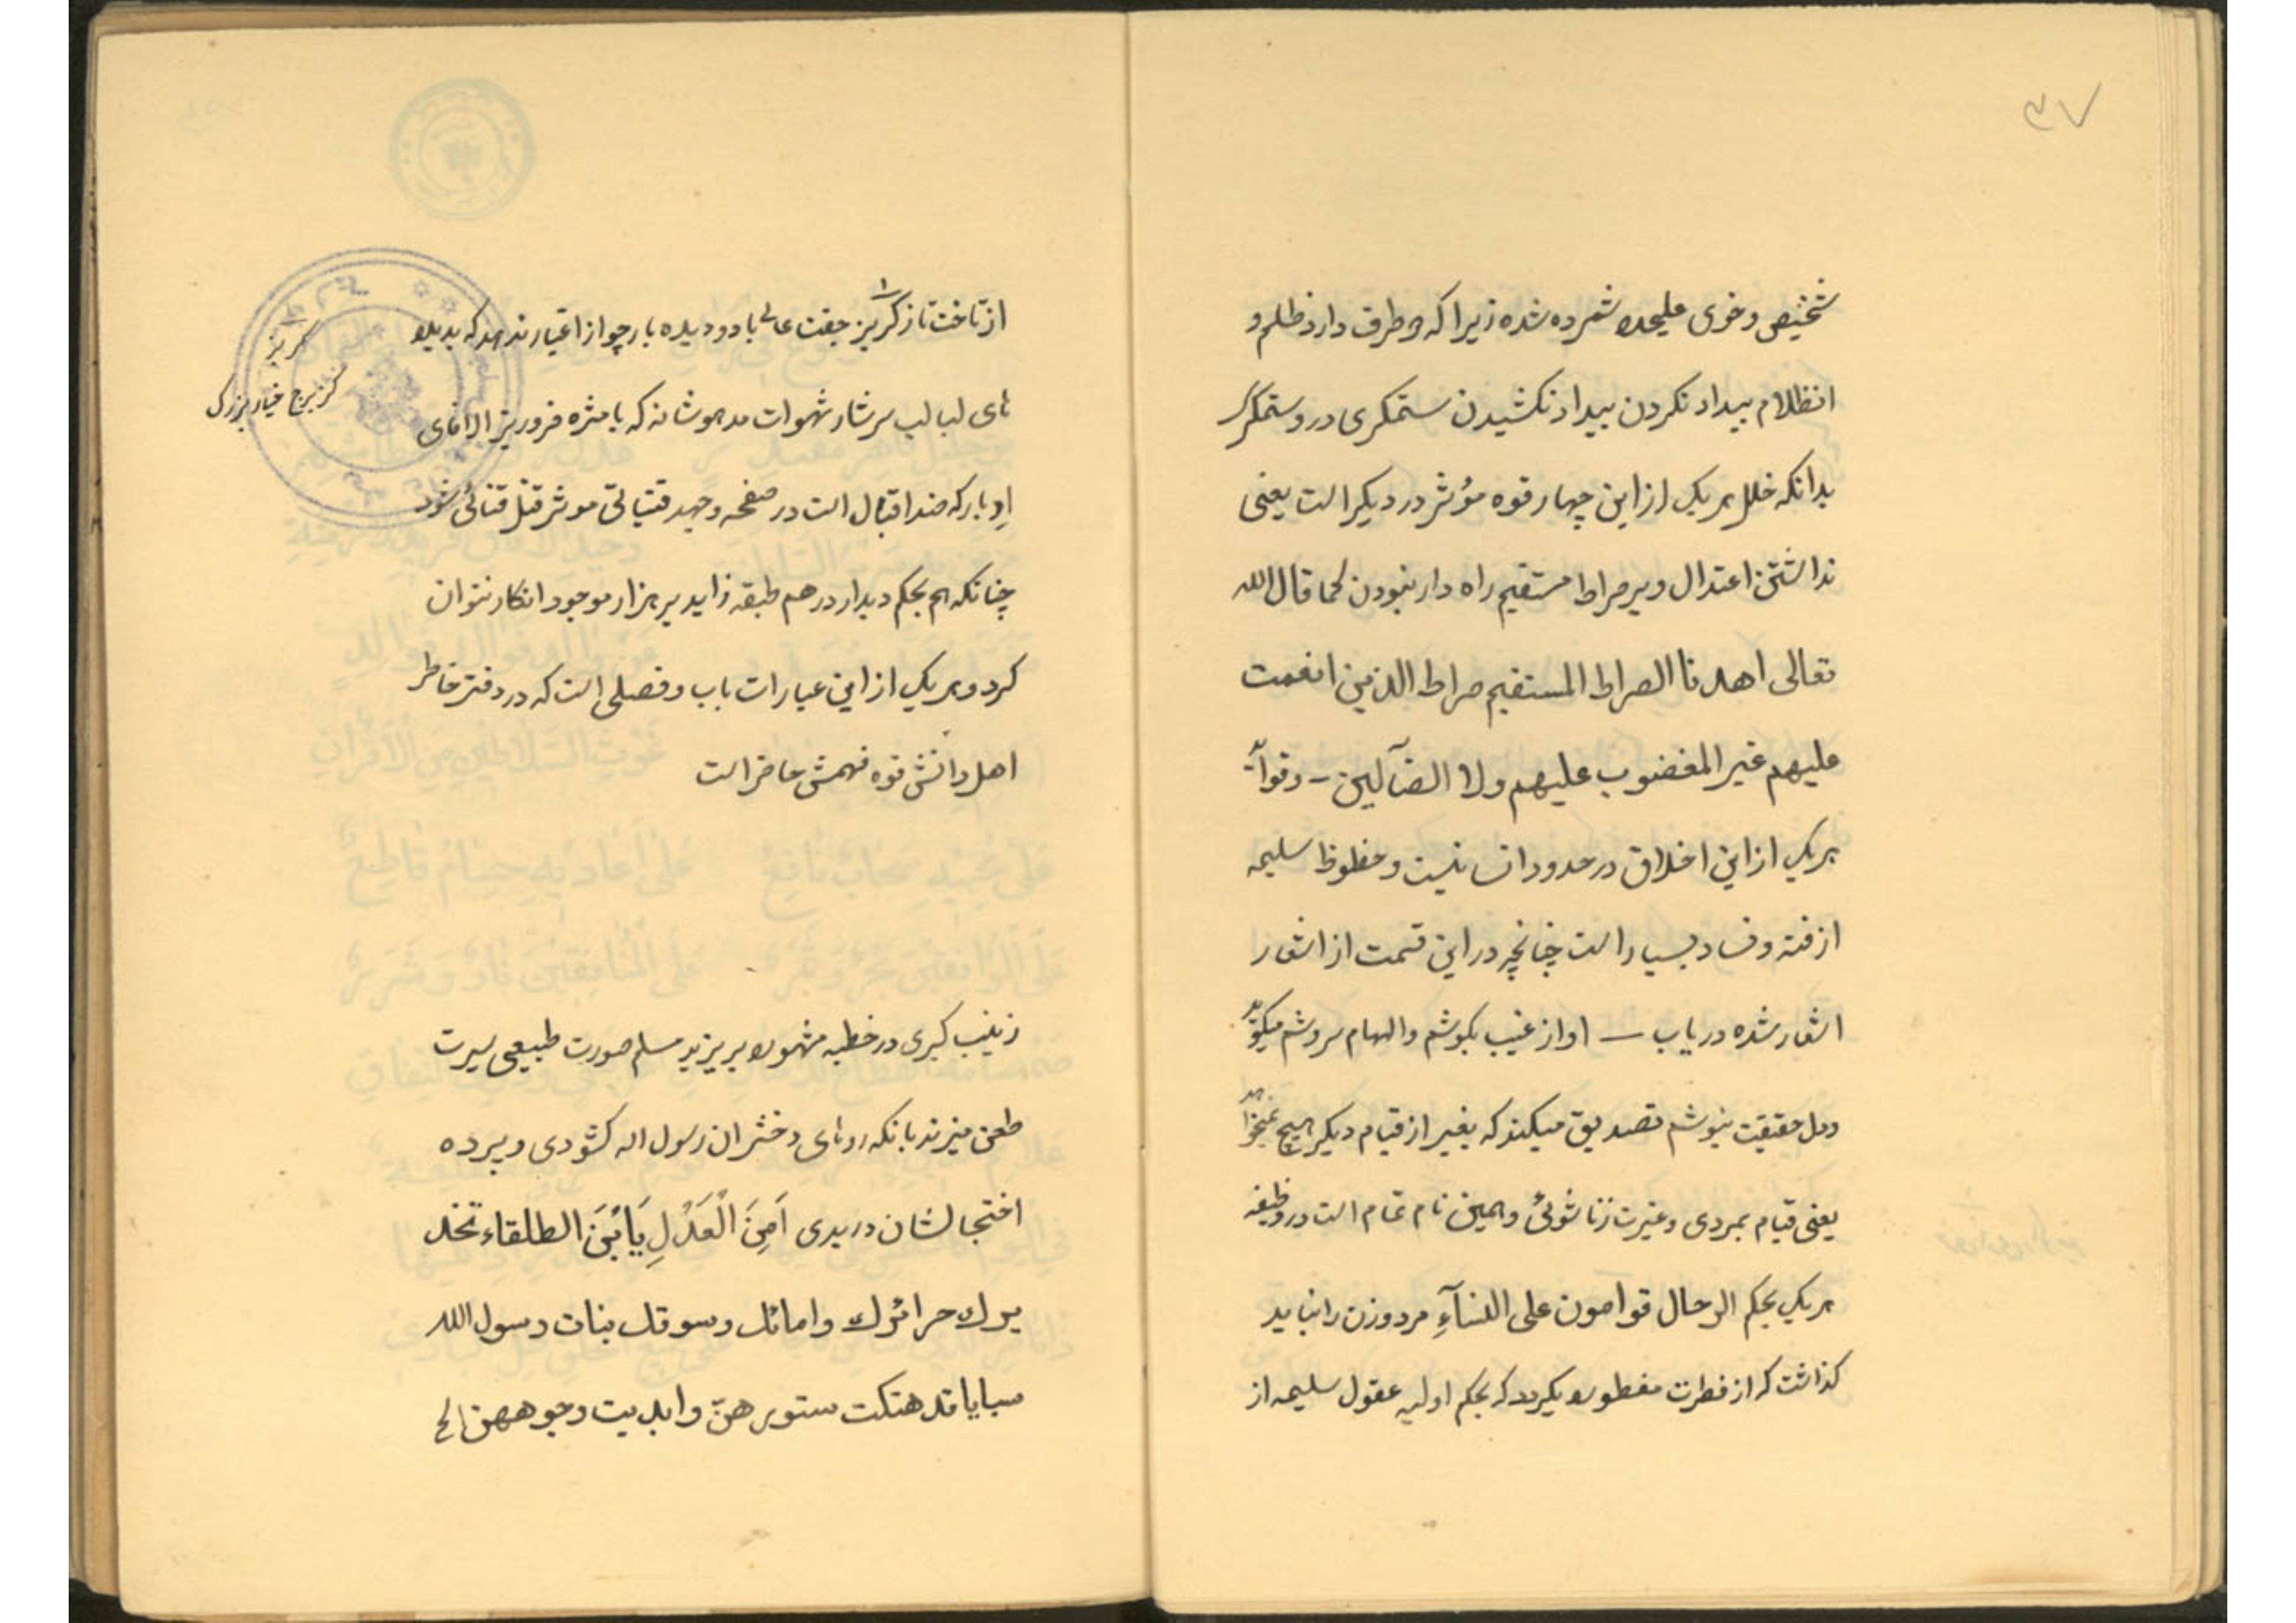 ۳۷
شخیص و خوی علیحده شمرده شده زیرا که دو طرف دارد ظلم و
انظلام بیداد نکردن بیداد نکشیدن ستمگری درو ستمگر
بدانکه خلل هر یک از این چهار قوه مؤثر در دیگر است یعنی
نداشتن اعتدال و بر صراط مستقیم راه دار نبودن کما قال الله
تعالی اهدنا الصراط المستقیم صراط الذین انعمت
علیهم غیر المغضوب علیهم ولا الضآلین –
هر یک از این اخلاق در حدود انسانیت و حظوظ سلیمه
از فتنه و فساد بسیار است چنانچه در این قسمت از اشعار
اشعار شده در یاب — اواز غیب بگوشم والهام سروشم میگوید
ودل حقیقت نیوشم تصدیق میکند که بغیر از قیام دیگر هیچ نمیخواهد
یعنی قیام بمردی و غیرت زناشوئی و همین نام تمام است در وظیفه
هر یک بحکم الرجال قوامون علی النسآءِ مرد و زن را نباید
گذاشت که از فطرت مفطوره بگردد که بحکم اولیه عقول سلیمه از
از تاخت تاز گریز جفت عالی با دو دیده بار چو از اغیار ندهد که بدیلو
ئای لبالب سرشار شهوات مدهوشانه که با مثره فروریز الاانای
اوبار که ضد اقبال است در صفحه وجهد قتیالتی موثر قتل قتائی شود
چنانکه هم بحکم دیدار در هم طبقه زاید بر هزار موجود انکار نتوان
کرد و هر یک از این عبارات باب و فصلی است که در دفتر خاطر
اهل دانش قوه فهمش حاضر است
گریز
خیار بزرگ
زینب کبری در خطبه مشهوره بر یزید مسلم صورت طبیعی سیرت
طعن میزند بانکه روهای دختران رسول اله گشودی و پرده
احتجابشان دریدی اَمِنَ الْعَدْلِ یَابْنَ الطلقاء تخد
یرک حرائرک وامائک وسوقک بنات رسول الله
سبایا قد هتکت ستورهنّ وابدیت وجوههن الخ